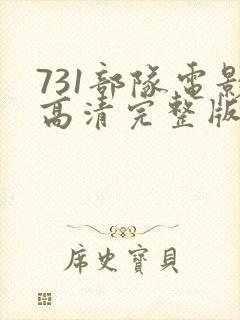 731部队电影
高清完整版
席史寶貝